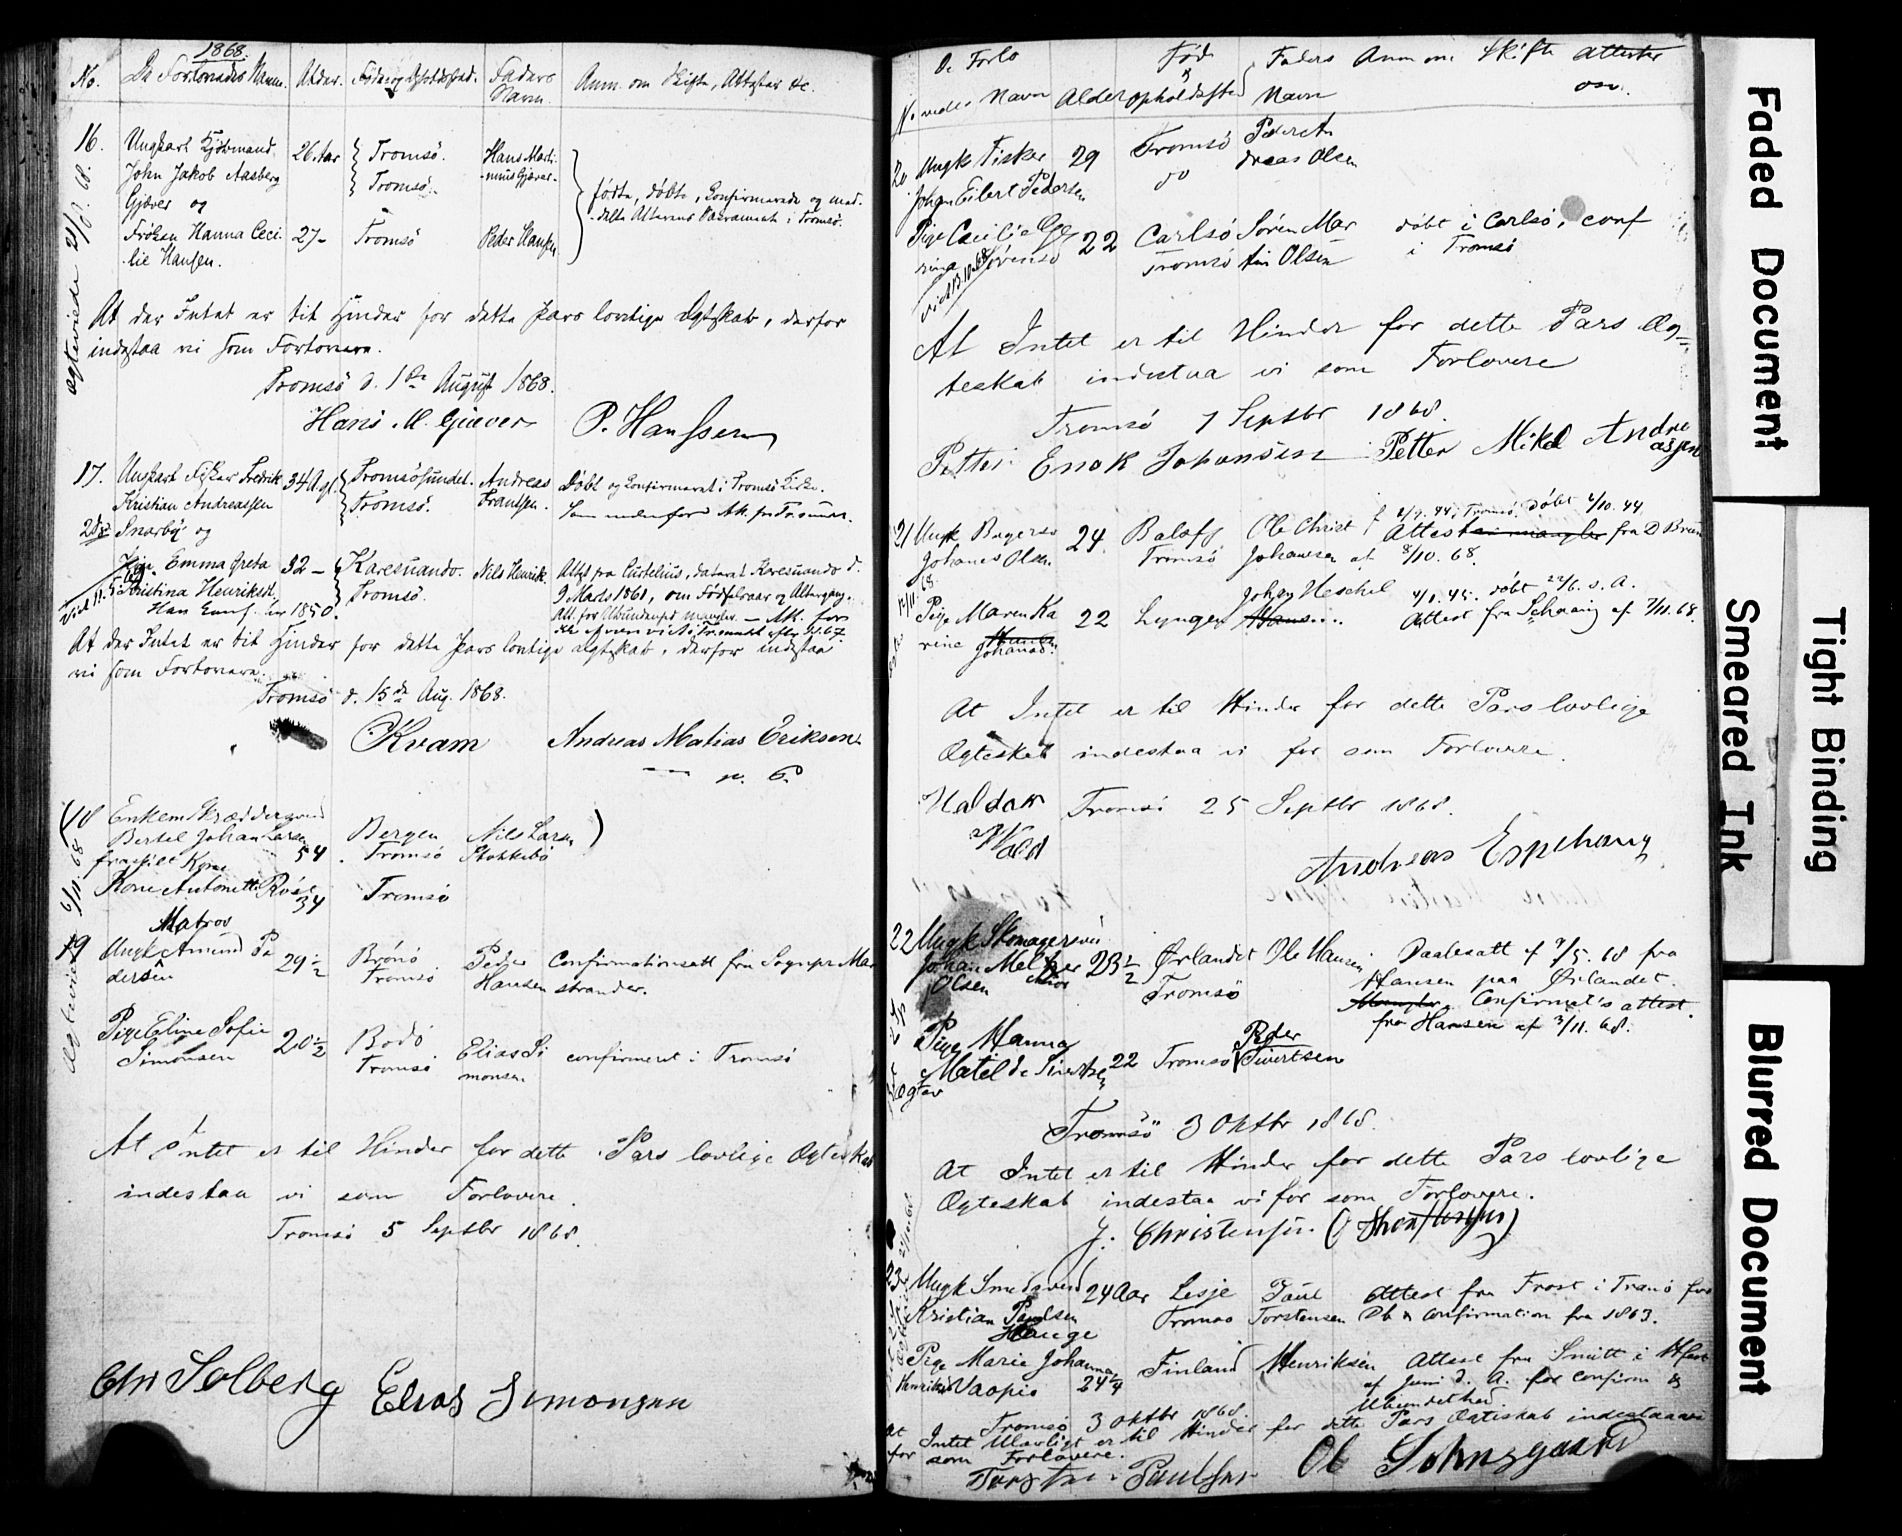 1868.
No. De Forlovedes Navne. Alder. Føde og Opholdssted. Faders Navn. Anm. om Skifte, Attester &c.
16. Ungkarl Kjøbmand 26 Aar Tromsø. Hans Marti-
John Jakob Aasberg Tromsø. -nus Gjæver-
Gjæver og
født, døbt, Confirmerede og med-
-delte Alterens Sacramente i Tromsø.
Frøken Hanna Ceci 27 - Tromsø Peder Hansen
-lie Hansen.
Ægteviede 21/8. 68.
At der Intet er til Hinder for dette Pars lovlige Ægteskab, derfor
indestaa vi som Forlovere.
Tromsø d. 1ste August 1868.
Hans M. Gjæver P. Hanssen
17. Ungkarl Fisker Fredrik 34 Tromsøsundet. Andreas Døbt og Confirmeret i Tromsø Kirke.
Kristian Andreassen Tromsø. Frantsen.
Snarby og
Pige Emma Greta 32 - Karesuando. Nils Henrik.
Kristina Henriksd. Tromsø.
Han Conf. 1850.
9 Marts 1861, om Fødselsaar og Altergang.
At der Intet er til Hinder for dette Pars lovlige Ægteskab, derfor indestaa
vi som Forlovere.
Tromsø d. 15de Aug. 1868.
Kvam Andreas Matias Eriksen
18 Enkem Skræddersvend
Bertel Johan Larsen 54 Bergen Nils Larsen
fraskilt Kone Tromsø Stokkebø
Kone Antonette Røst 34 Tromsø
6/11. 68
Matros
19 Ungk Amund Pe 29 1/2 Brønø Peder Confirmationsatt fra Sognepr Mar
dersen Tromsø Hansen strander.
Pige Eline Sofie 20 1/2 Bodø Elias Si confirmeret i Tromsø
Simonsen Tromsø monsen
At Intet er til Hinder for dette Pars lovlige Ægteskab
indestaa vi som Forlovere.
Tromsø 5 Septbr 1868.
Chr Solberg Elias Simonsen
De Forlo Fød Faders Anm om Skifte attester
No vedes Navn Alder & opholdssted Navn osv.
20 Ungk Fisker 29 Tromsø Peder An
Johan Eilert Pedersen do dreas Olsen
Pige Cecilie 22 Carlsø Søren Mar døbt i Carlsø, conf
Tromsø tin Olsen i Tromsø
viet 13.10.68
At Intet er til Hinder for dette Pars Æg-
teskab indestaa vi som Forlovere
Tromsø 7 Septbr 1868.
Petter Enok Johansen Petter Mikal Andre
assen
21 Ungk Bagersv 24 Balsfj Ole Christ f 2/9. 44, Tromsø, døbt 4/10. 44.
Johanes Olsen Tromsø Johansen Attest mangler fra D Brun
af 8/10. 68.
Pige Maren Ka 22 Lyngen Johan Heschel 4/1. 45. døbt 22/6. s. A.
rine Hansen Attest fra Schaaning af 7/11. 68.
Johanes
At Intet er til Hinder for dette Pars lovlige
Ægteskab indestaa vi for som Forlovere.
Haldor Tromsø 25 Septbr 1868.
Wold
Andreas Espehaug
22 Ungk Skomagersv
Johan Meltzer 23 1/2 Ørlandet Ole Hansen Daabsatt af 7/5. 68 fra
Olsen Tromsø Hansen paa Ørlandet.
Mangler Confirmat's attest.
fra Hansen af 3/11. 68.
Pige Hanna Peder
Matilde Sivertsen 22 Tromsø Sivertsen
Tromsø 3 Oktbr 1868.
At Intet er til Hinder for dette Pars lovlige
Ægteskab indestaa vi for som Forlovere.
J. Christensen
23 Ungk Smedsvend 24 Aar Lesje Paul Attest fra Frost i Tranø for
Kristian Paulsen Tromsø Torstensen Db & confirmation fra 1863.
Hauge
Pige Marie Johanna Finland Henriksen Attest fra Smitt i Hfest
Henriksd Vaapio 24 1/4 af Juni d. A. for confirm &
Ubundethed.
Tromsø 3 Oktbr 1868.
At Intet Ulovligt er til Hinder for dette Pars Ægteskab indestaaes
for som Forlovere.
Torsten Paulsen Ol Solnsgaard
Faded Document
Tight Binding
Smeared Ink
Blurred Document